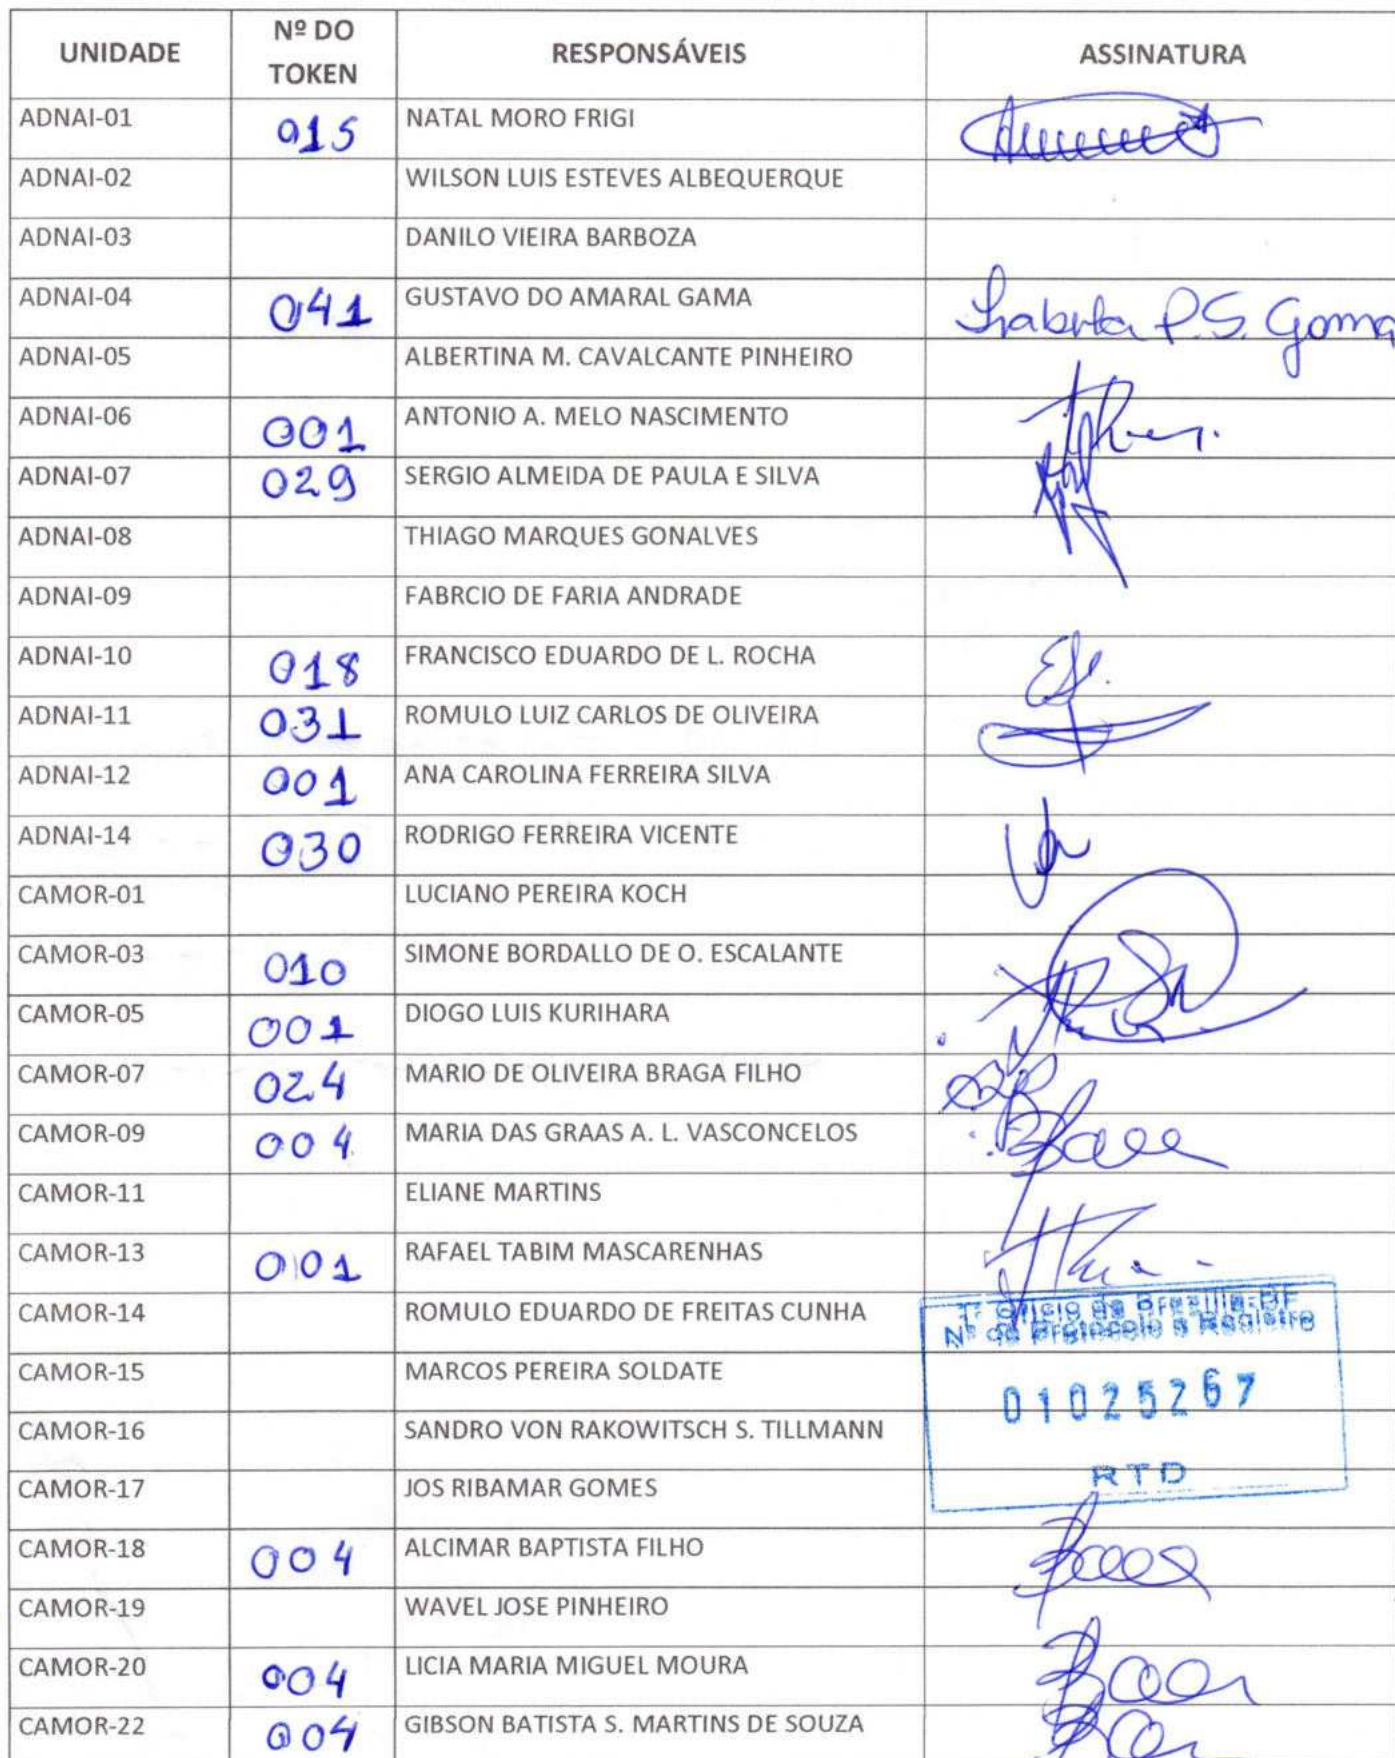 UNIDADE Nº DO TOKEN RESPONSÁVEIS ASSINATURA
ADNAI-01 015 NATAL MORO FRIGI
ADNAI-02 WILSON LUIS ESTEVES ALBEQUERQUE
ADNAI-03 DANILO VIEIRA BARBOZA
ADNAI-04 041 GUSTAVO DO AMARAL GAMA P.S. Gama
ADNAI-05 ALBERTINA M. CAVALCANTE PINHEIRO
ADNAI-06 001 ANTONIO A. MELO NASCIMENTO
ADNAI-07 029 SERGIO ALMEIDA DE PAULA E SILVA
ADNAI-08 THIAGO MARQUES GONALVES
ADNAI-09 FABRCIO DE FARIA ANDRADE
ADNAI-10 018 FRANCISCO EDUARDO DE L. ROCHA
ADNAI-11 031 ROMULO LUIZ CARLOS DE OLIVEIRA
ADNAI-12 001 ANA CAROLINA FERREIRA SILVA
ADNAI-14 030 RODRIGO FERREIRA VICENTE
CAMOR-01 LUCIANO PEREIRA KOCH
CAMOR-03 010 SIMONE BORDALLO DE O. ESCALANTE
CAMOR-05 001 DIOGO LUIS KURIHARA
CAMOR-07 024 MARIO DE OLIVEIRA BRAGA FILHO
CAMOR-09 004 MARIA DAS GRAAS A. L. VASCONCELOS
CAMOR-11 ELIANE MARTINS
CAMOR-13 001 RAFAEL TABIM MASCARENHAS
CAMOR-14 ROMULO EDUARDO DE FREITAS CUNHA
1º Ofício de Brasília-DF
Nº de Protocolo e Registro
CAMOR-15 MARCOS PEREIRA SOLDATE 01025267
CAMOR-16 SANDRO VON RAKOWITSCH S. TILLMANN
CAMOR-17 JOS RIBAMAR GOMES RTD
CAMOR-18 004 ALCIMAR BAPTISTA FILHO
CAMOR-19 WAVEL JOSE PINHEIRO
CAMOR-20 004 LICIA MARIA MIGUEL MOURA
CAMOR-22 004 GIBSON BATISTA S. MARTINS DE SOUZA